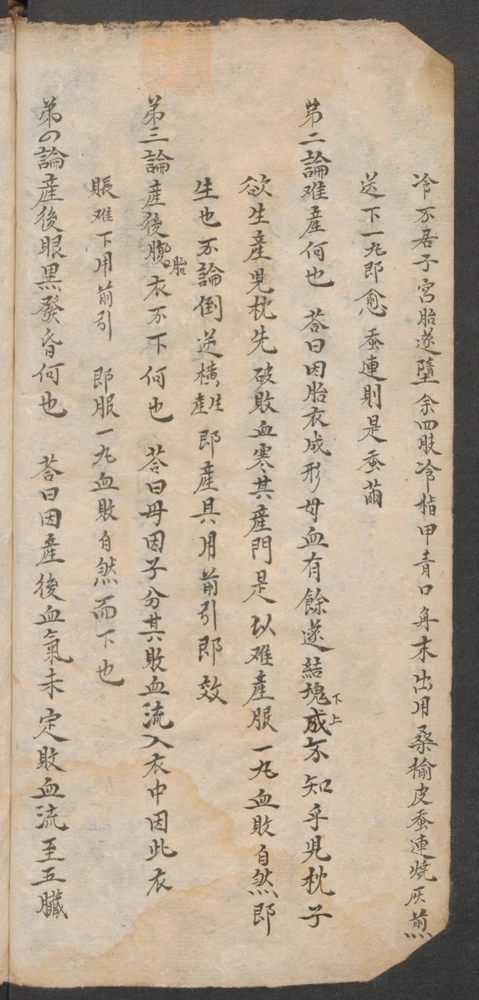 冷不居子宮胎遂墮余四肢冷指甲青口舟末出用桑榆皮蚕連燒灰煎
送下一九即愈蚕連則是蚕繭
苐二論难産何也 荅曰因胎衣成形母血有餘遂結塊成不知乎児枕子
下上
欲生産児枕先破敗血寒其産門是以难産服一九血敗自然即
生也不論倒逆横産 即産具用前引即效
生
弟三論産後 衣不下何也 荅曰母因子分其敗血流入衣中因此衣
胎
賬难下用前引 即服一九血敗自然而下也
弟の論産後眼黒發昏何也 荅曰因産後血氣未定敗血流至五臟